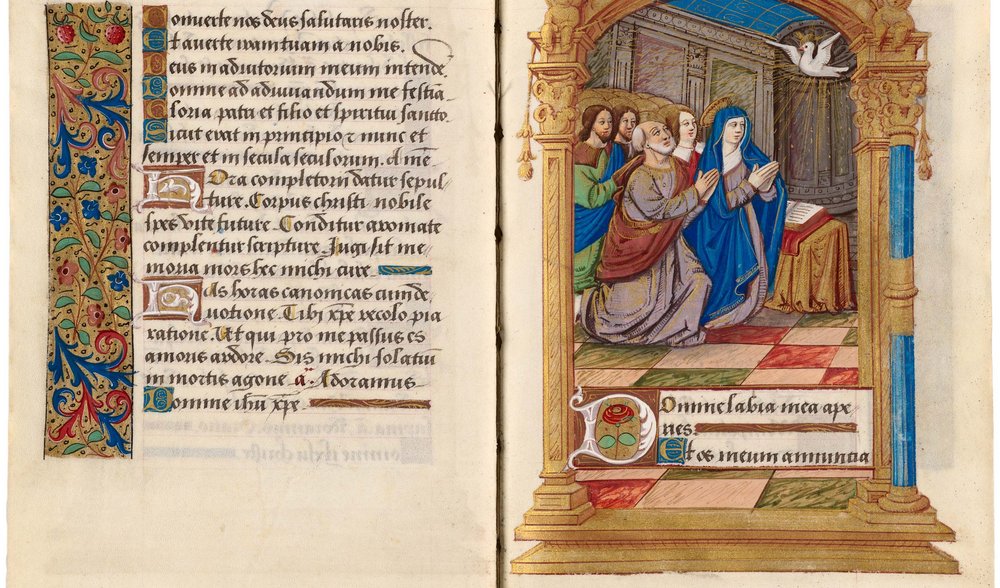 Converte nos deus salutaris noster.
Et averte iram tuam a nobis.
Deus in adiutorium meum intende.
Domine ad adiuvandum me festina
Gloria patri et filio et spiritui sancto
Sicut erat in principio ⁊ nunc et
semper et in secula seculorum. Amē
Hora completorii datur sepul-
ture. Corpus christi nobile
spes vite future. Conditur aromate
complentur scripture. Jugi sit me-
moria mors hec michi cure.
Has horas canonicas cum de-
votione. Tibi xp̄e recolo pia
ratione. Ut qui pro me passus es
amoris ardore. Sis michi solatiū
in mortis agone. a. Adoramus
Domine ihū xp̄e
Domine labia mea ape-
ries.
Et os meum annuntia